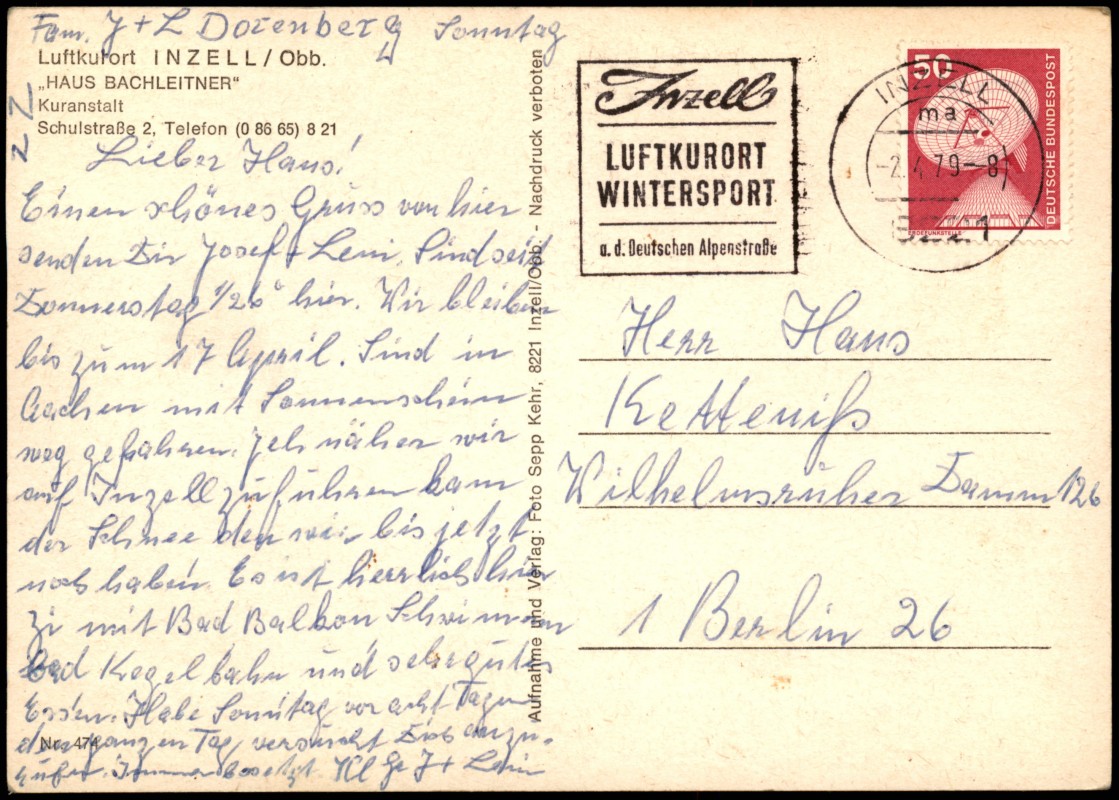 Fam. J + L Dorenberg Sonntag
Luftkurort INZELL / Obb.
„HAUS BACHLEITNER"
Kuranstalt
Schulstraße 2, Telefon (0 86 65) 8 21
ZZ
Lieber Hans!
Einen schönes Gruss von hier
senden Dir Josef + Leni. Sind seit
Donnerstag hier. Wir bleiben
bis zum 17 April. Sind in
Aachen mit Sonnenschein
weg gefahren. Jeh näher wir
auf Inzell zufuhren kam
der Schnee den wir bis jetzt
noch haben. Es ist herrlich hier
Zi mit Bad Balkon Schwimm
Bad Kegelbahn und sehr gutes
Essen. Habe Sonntag vor acht Tagen
den ganzen Tag, versucht Dich anzu-
rufen. Immer besetzt Hl Gr J + Leni
Nr. 474
Aufnahme und Verlag: Foto Sepp Kehr, 8221 Inzell/Obb. - Nachdruck verboten
Inzell
LUFTKURORT
WINTERSPORT
a. d. Deutschen Alpenstraße
INZELL
ma
-2.4.79--8
8221
50
DEUTSCHE BUNDESPOST
ERDEFUNKSTELLE
Herr Hans
Kettenifs
Wilhelmsruher Damm 126
1 Berlin 26